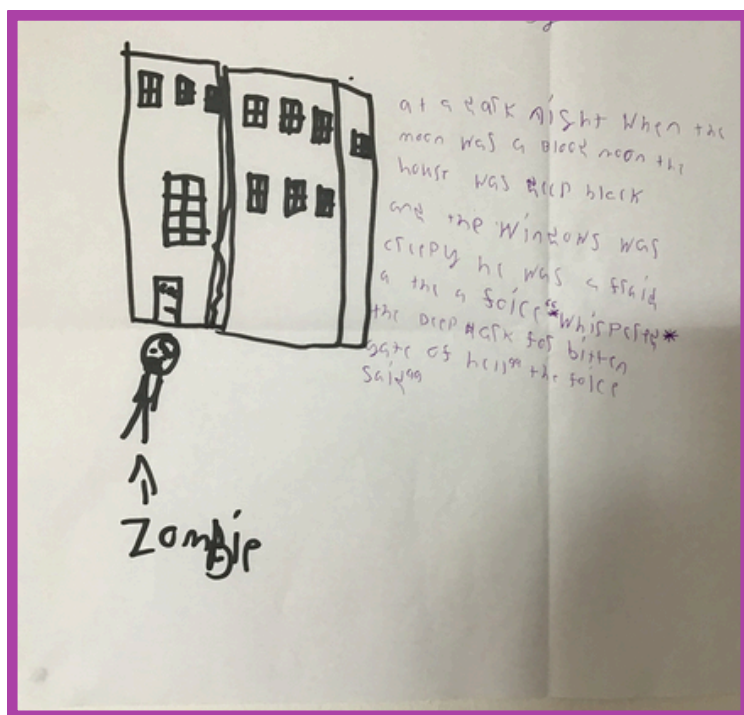 at a dark night when the
moon was a blood moon the
house was deep black
and the windows was
creepy he was a fraid
a the a foice “*whispered*
the Deep dark for bitten
gate of hell” the foice
said”
Zombie